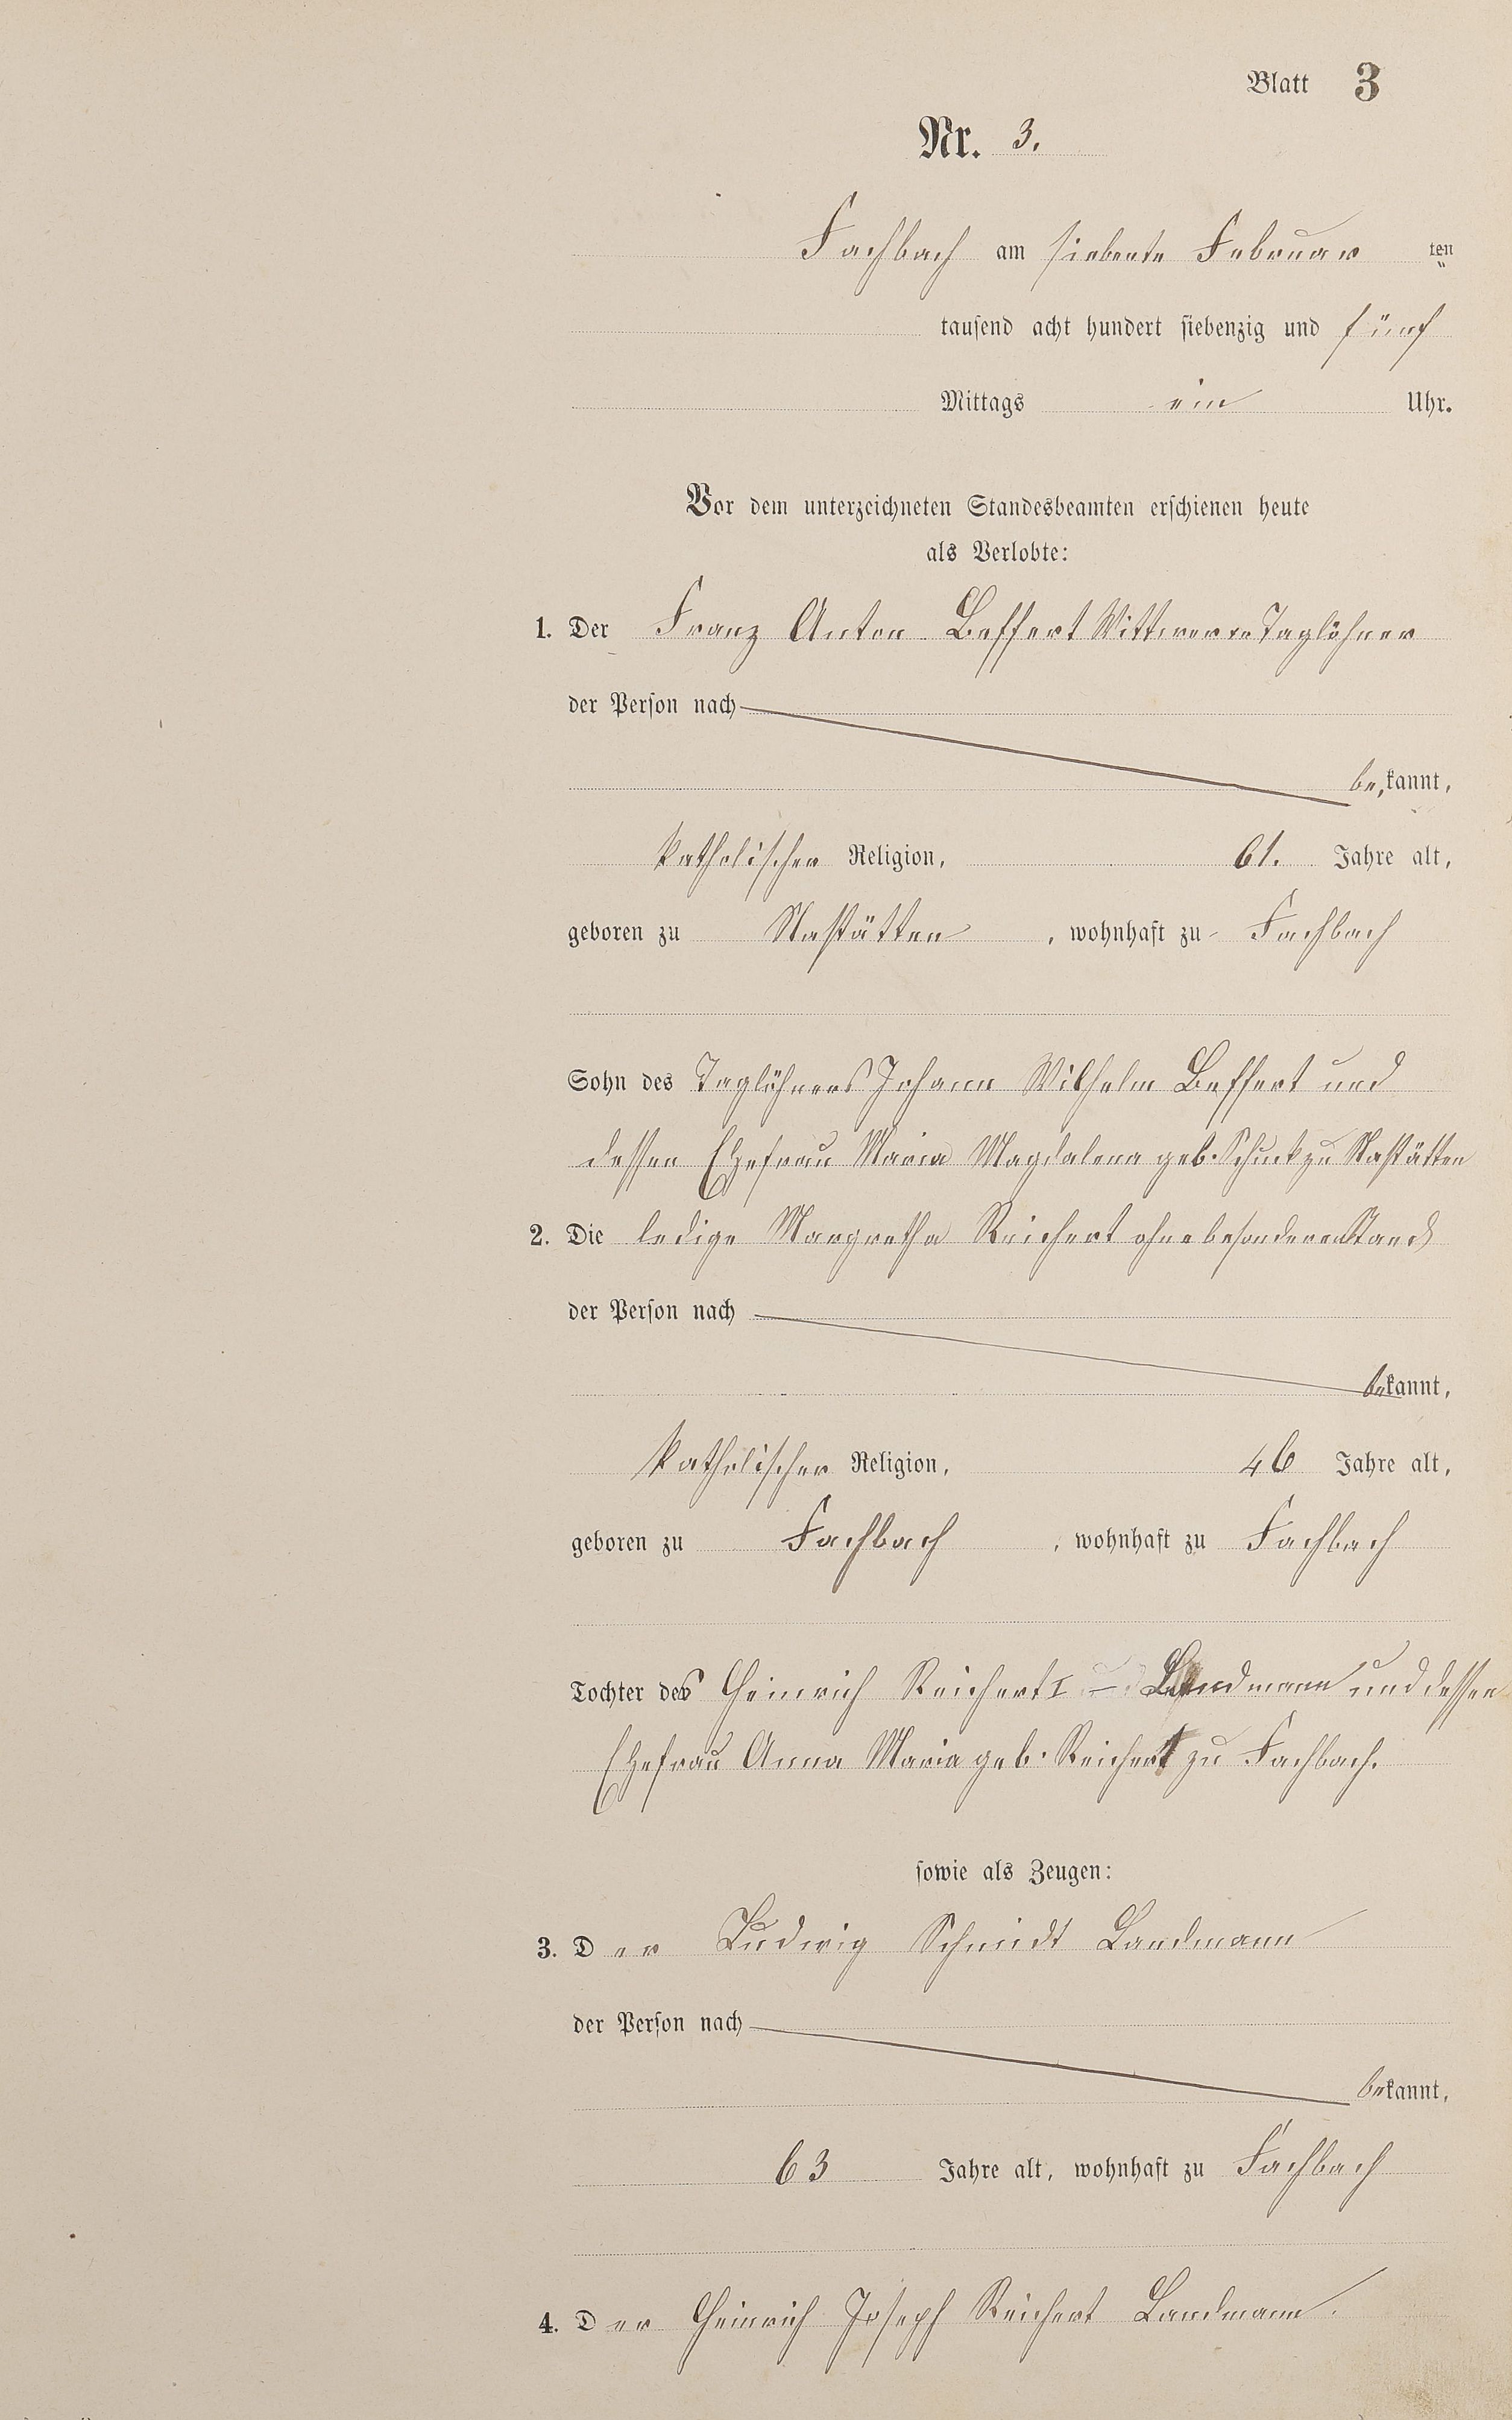 Blatt 3
Nr. 3.
Fachbach am siebente Februar ten
tausend acht hundert siebenzig und fünf
Mittags ein Uhr.
Vor dem unterzeichneten Standesbeamten erschienen heute
als Verlobte:
1. Der Franz Anton Beffert Wittwer Taglöhner
der Person nach
bekannt,
katholischer Religion, 61. Jahre alt,
geboren zu Nastätten, wohnhaft zu Fachbach
Sohn des Taglöhners Johann Wilhelm Beffert und
dessen Ehefrau Maria Magdalena geb. zu Nastätten
2. Die ledige Margretha Reichert ohne besonderen Stand
der Person nach
bekannt,
katholischer Religion, 46 Jahre alt,
geboren zu Fachbach, wohnhaft zu Fachbach
Tochter des Heinrich Reichert I Landmann und dessen
Ehefrau Anna Maria geb. Reichert zu Fachbach.
sowie als Zeugen:
3. Der Ludwig Schmidt Landmann
der Person nach
bekannt,
63 Jahre alt, wohnhaft zu Fachbach
4. Der Heinrich Joseph Reichert Landmann.